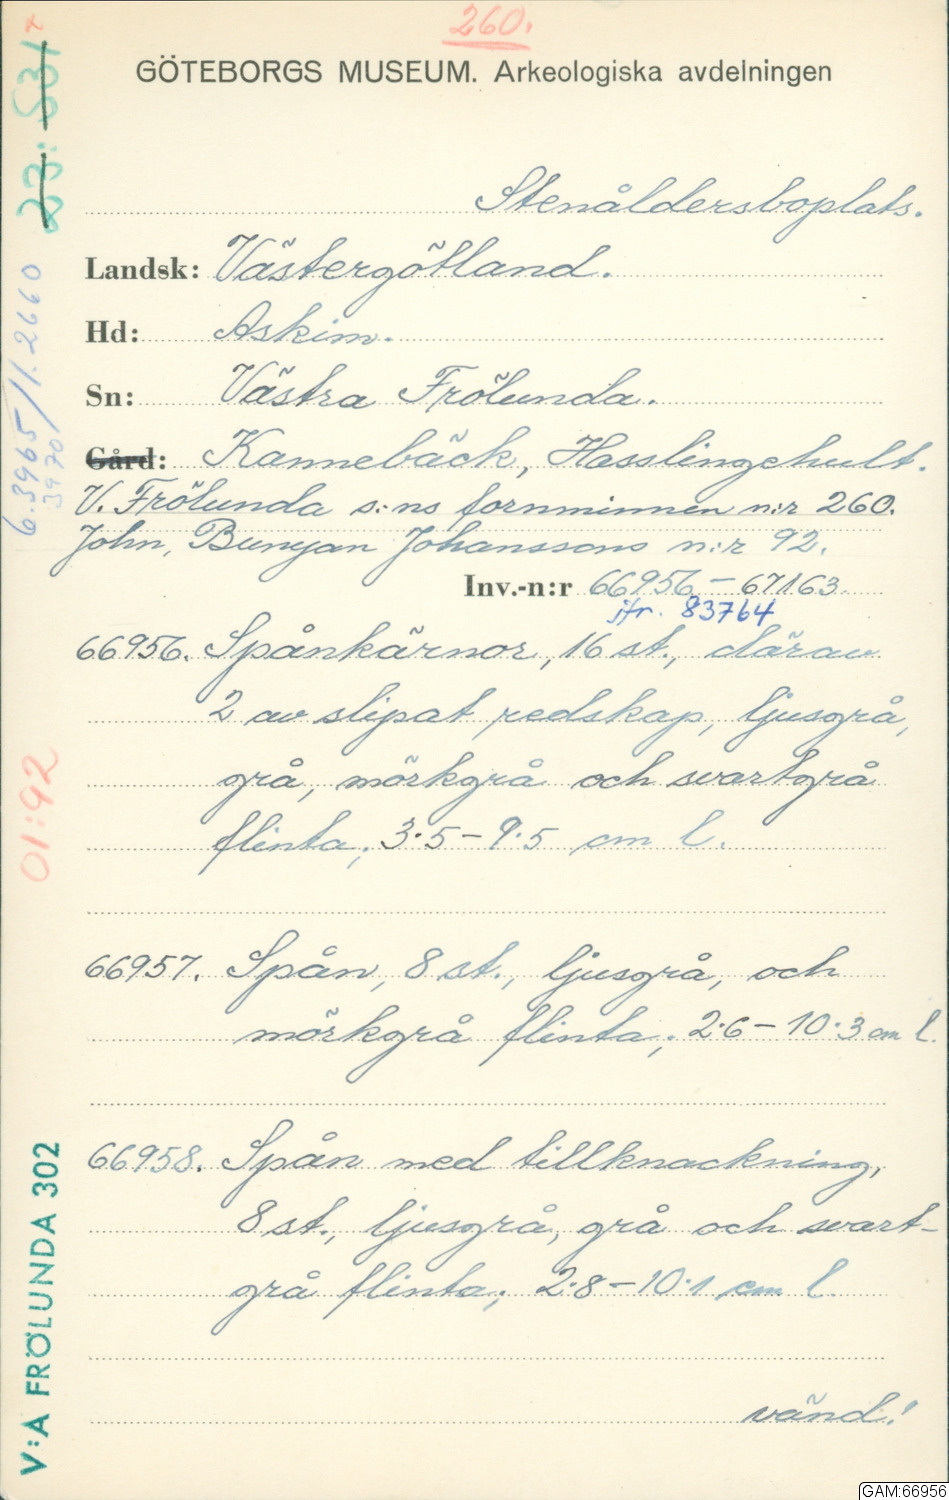 260.
GÖTEBORGS MUSEUM. Arkeologiska avdelningen
Stenåldersboplats.
Landsk: Västergötland.
Hd: Askim.
Sn: Västra Frölunda.
Gård: Kannebäck, Hasslingehult.
V. Frölunda s:ns fornminnen n:r 260.
John, Bunyan Johanssons n:r 92.
Inv.-n:r 66956 – 67163
jfr. 83764
66956. Spånkärnor, 16 st., därav
2 av slipat redskap, ljusgrå,
grå, mörkgrå och svartgrå
flinta; 3·5 – 9·5 cm l.
66957. Spån, 8 st., ljusgrå, och
mörkgrå flinta; 2·6 – 10·3 cm l.
66958. Spån med tillknackning,
8 st., ljusgrå, grå och svart-
grå flinta; 2·8 – 10·1 cm l.
vänd!
23:531
6.3965/1.2660
3970
01:92
V:A FRÖLUNDA 302
GAM:66956